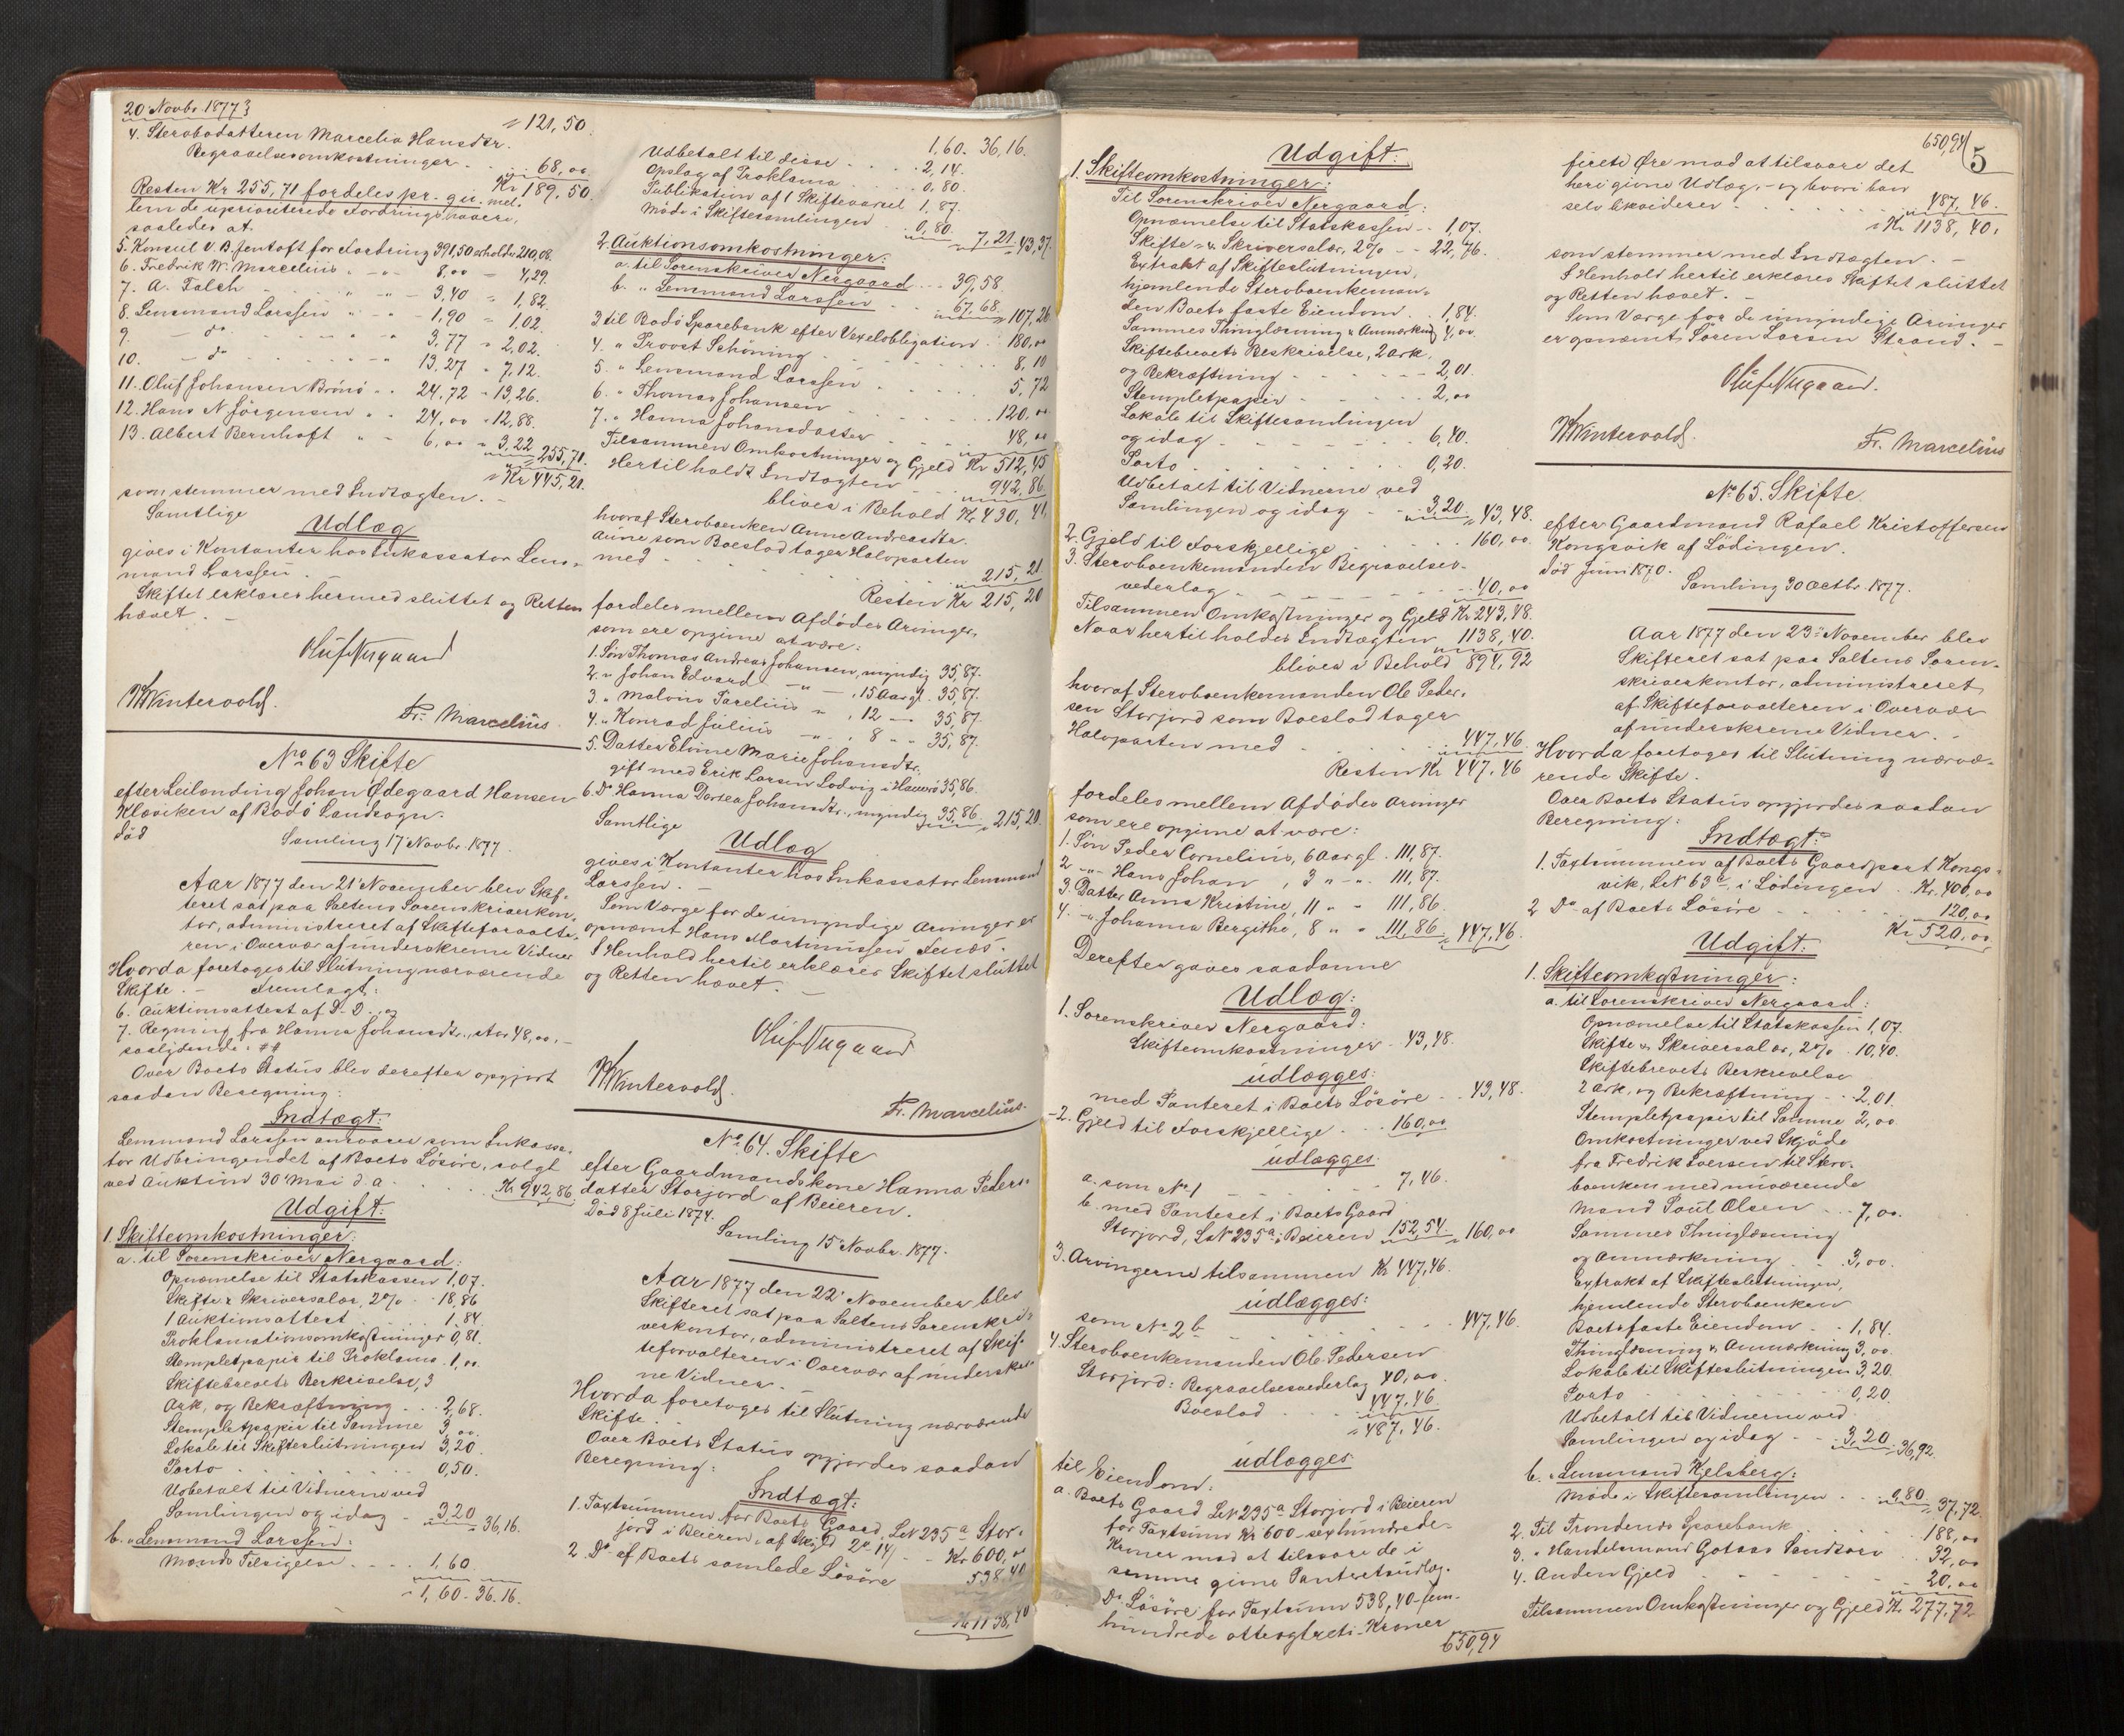 20 Novbr. 1877.
" 121,50.
4. Sterbodatteren Marcelia Hansdtr.
Begravelsesomkostninger . . 68,00
Kr 189,50.
Resten Kr 255,71 fordeles pr. qu. mel-
lem de uprioriterede Fordringshavere,
saaledes at
5. Konsul V. B. Jentoft for Fordring 391,50 erholder 210,08.
6. Fredrik W. Marcelius " - 8,00 - 4,29.
7. A. Falch . . " - 3,40 " 1,82.
8. Lensmand Larssen " - 1,90 " 1,02.
9. - do - . . 3,77 " 2,02.
10. - do . . 13,27 " 7,12.
11. Oluf Johansen Brönö " - 24,72 " 13,26.
12. Hans N Jörgensen " " 24,00 " 12,88.
13. Albert Bernhoft " " 6,00 " 3,22 " 255,71.
" Kr 445,21.
som stemmer med Indtægten. -
Samtlige
Udlæg
gives i Kontanter hos Inkassator Lens-
mand Larssen. -
Skiftet erklæres hermed sluttet og Retten
hævet. -
Oluf Nergaard
Wintervold.
Fr. Marcelius.
No 63 Skifte
efter Leilænding Johan Ødegaard Hansen
Kløviken af Bodö Landsogn.
Död
Samling 17 Novbr. 1877.
Aar 1877 den 21 November blev Skif-
teret sat paa Saltens Sorenskriverkon-
tor, administreret af Skifteforvalte-
ren i Overvær af underskrevne Vidner
Hvorda foretoges til Slutning nærværende
Skifte. - Fremlagt:
6. Auktionsattest af D. D. og
7. Regning fra Hanna Johansdtr., stor 48,00, -
saalydende: ##
Over Boets Status blev derefter opgjort
saadan Beregning:
Indtægt:
Lensmand Larssen ansvares som Inkassa-
tor Udbringendet af Boets Lösöre, solgt
ved Auktion 30 Mai d. a . . Kr 942,86.
Udgift:
1. Skifteomkostninger:
a. til Sorenskriver Nergaard:
Opnævnelse til Statskassen 1,07.
Skifte & Skriversalær, 2% . . 18,86
1 Auktionsattest . . . 1,84.
Proklamationsomkostninger 0,81.
Stempletpapir til Proklama . 1,00.
Skiftebrevets Beskrivelse, 3
Ark, og Bekræftning . . 2,68.
Stempletpapir til Samme 3,00.
Lokale til Skifteslutningen 3,20.
Porto . . . . . 0,50.
Udbetalt til Vidnerne ved
Samlingen og idag - 3,20 " 36,16.
b. " Lensmand Larssen:
Mands Tilsigelse . . . . 1,60
" 1,60 - 36.16.
1,60. 36,16.
Udbetalt til disse . . . . 2,14.
Opslag af Proklama . . . 0,80.
Publikation af 1 Skiftevarsel 1,87.
Möde i Skiftesamlingen . . 0,80 " 7,21 " 43,37.
2. Auktionsomkostninger:
a. til Sorenskriver Nergaard . . 39,58.
b. " Lensmand Larssen - 67,68. " 107,26
3 til Bodö Sparebank efter Vexelobligation . 180,00
4. " Provst Schöning . . . . 8,10
5. " Lensmand Larssen . . . 5,72
6. " Thomas Johansen . . . . 120,00
7. " Hanna Johansdatter . . . 48,00
Tilsammen Omkostninger og Gjeld Kr 512,45
Hertil holdt Indtægten . . 942,86
blives i Behold Kr 430,41
hvoraf Sterboenken Anne Andreasdtr.
Aune som Boeslod tager Halvparten
med . . . . . 215,21
Resten Kr 215,20
fordeles mellem Afdödes Arvinger,
som ere opgivne at være:
1. Sön Thomas Andreas Johansen, myndig 35,87.
2. " Johan Edvard - " - , 15 Aar gl. 35,87.
3. " Malvin Parelius " " , 12 - 35,87.
4. " Konrad Julius - " - , 8 " " 35,87.
5. Datter Elvine Marie Johansdtr.
gift med Erik Larsen Lodvig i Haversö 35,86.
6. Do Hanna Dortea Johansdtr., myndig 35,86. " 215,20.
Samtlige
Udlæg
gives i Kontanter hos Inkassator Lensmand
Larssen. -
Som Værge for de umyndige Arvinger er
opnævnt Hans Martinussen Fenæs. -
I Henhold hertil erklæres Skiftet sluttet
og Retten hævet. -
Oluf Nergaard
Wintervold.
Fr. Marcelius.
No 64. Skifte
efter Gaardmandskone Hanna Peders-
datter Storjord af Beieren.
Död 8 Juli 1874.
Samling 15 Novbr. 1877.
Aar 1877 den 22' November blev
Skifteret sat paa Saltens Sorenskri-
verkontor, administreret af Skif-
teforvalteren i Overvær af underskrev-
ne Vidner. -
Hvorda foretoges til Slutning nærværende
Skifte. -
Over Boets Status opgjordes saadan
Beregning:
Indtægt:
1. Taxtsummen for Boets Gaard, LN 235 a Stor-
jord i Beieren, af Skyld 2 14 - Kr 600,00
2 Do af Boets samlede Lösöre 538,40
Kr 1138,40
Udgift:
1. Skifteomkostninger:
Til Sorenskriver Nergaard:
Opnævnelse til Statskassen . . 1,07.
Skifte- & Skriversalær, 2% - - 22,76.
Extrakt af Skifteslutningen,
hjemlende Sterboenkeman-
den Boets faste Eiendom . . 1,84.
Sammes Thinglæsning & Anmærkning 4,00.
Skiftebrevets Beskrivelse, 2 ark,
og Bekræftning - - - - - 2,01.
Stempletpapir - - - - 2,00
Lokale til Skiftesamlingen
og idag - - - - - - 6,40.
Porto . . . . . . 0,20.
Udbetalt til Vidnerne ved
Samlingen og idag - - 3,20 " 43,48.
2. Gjeld til Forskjellige . . . . 160,00.
3. Sterboenkemanden Begravelses-
vederlag - - - - - - 40,00
Tilsammen Omkostninger og Gjeld Kr 243,48.
Naar hertil holdes Indtægten 1138,40.
blives i Behold 894,92
hvoraf Sterboenkemanden Ole Peder-
sen Storjord som Boeslod tager
Halvparten med . . . . 447,46.
Resten Kr 447,46
fordeles mellem Afdödes Arvinger
som ere opgivne at være:
1. Sön Peder Cornelius, 6 Aar gl . 111,87.
2 - " - Hans Johan , 3 " - " 111,87.
3. Datter Anna Kristine, 11 " - 111,86.
4. - " - Johanna Bergithe, 8 " " 111,86. " 447,46.
Derefter gaves saadanne
Udlæg:
1. Sorenskriver Nergaard:
Skifteomkostninger - 43,48.
udlægges:
med Panteret i Boets Lösöre - . 43,48.
2. Gjeld til Forskjellige . . . 160,00
udlægges:
a. som No 1 - - - - - 7,46.
b. med Panteret i Boets Gaard
Storjord, LN 235 a i Beieren 152,54 " 160,00
3. Arvingerne tilsammen Kr 447,46.
udlægges:
som No 2 b - - - - - 447,46.
4. Sterboenkemanden Ole Pedersen
Storjord: Begravelsesvederlag 40,00.
Boeslod . . . . 447,46
" 487,46.
udlægges
til Eiendom:
a. Boets Gaard LN 235 a Storjord i Beieren
for Taxtsum Kr 600 - sexhundrede-
Kroner mod at tilsvare de i
samme givne Panteretsudlæg.
Do Lösöre for Taxtsum 538,40 - fem-
hundrede otteogtreti - Kroner
650,94
650,94
5
fireti Øre mod at tilsvare det
heri givne Udlæg, - og hvori han
selv likviderer . . . . . 487,46.
" Kr 1138,40.
som stemmer med Indtægten. -
I Henhold hertil erklæres Skiftet sluttet
og Retten hævet. -
Som Værge for de umyndige Arvinger
er opnævnt Sören Larsen Strand. -
Oluf Nergaard.
Wintervold.
Fr. Marcelius
No 65. Skifte
efter Gaardmand Rafael Kristoffersen
Kongsvik af Lödingen.
Död Juni 1870.
Samling 30 Octbr. 1877.
Aar 1877 den 23 November blev
Skifteret sat paa Saltens Soren-
skriverkontor, administreret
af Skifteforvalteren i Overvær
af underskrevne Vidner. -
Hvorda foretoges til Slutning nærvæ-
rende Skifte.
Over Boets Status opgjordes saadan
Beregning:
Indtægt:
1. Taxtsummen af Boets Gaardpart Kongs-
vik, LN 63 a, i Lödingen . . Kr. 400,00
2 Do af Boets Lösöre - - - - 120,00
Kr 520,00
Udgift:
1. Skifteomkostninger:
a. til Sorenskriver Nergaard:
Opnævnelse til Statskassen 1,07.
Skifte & Skriversalær, 2% . 10,40.
Skiftebrevets Beskrivelse
2 Ark, og Bekræftning - - 2,01.
Stempletpapir til Samme 2,00
Omkostninger ved Skjöde
fra Fredrik Iversen til Sterbo-
boenken med nuværende
Mand Poul Olsen . . . 7,00.
Sammes Thinglæsning
og Anmærkning . . . 3,00.
Extrakt af Skifteslutningen,
hjemlende Sterboenken
Boets faste Eiendom . . 1,84.
Thinglæsning & Anmærkning 3,00.
Lokale til Skifteslutningen 3,20.
Porto . . . . . . 0,20
Udbetalt til Vidnerne ved
Samlingen og idag - - 3,20 " 36,92.
b. " Lensmand Kjelsberg:
Möde i Skiftesamlingen . . 0,80 " 37,72.
2. Til Trondenes Sparebank . . . 188,00
3. " Handelsmand Gotaas Sandtorv . . 32,00
4. Anden Gjeld - - - - - 20,00
Tilsammen Omkostninger og Gjeld Kr. 277,72